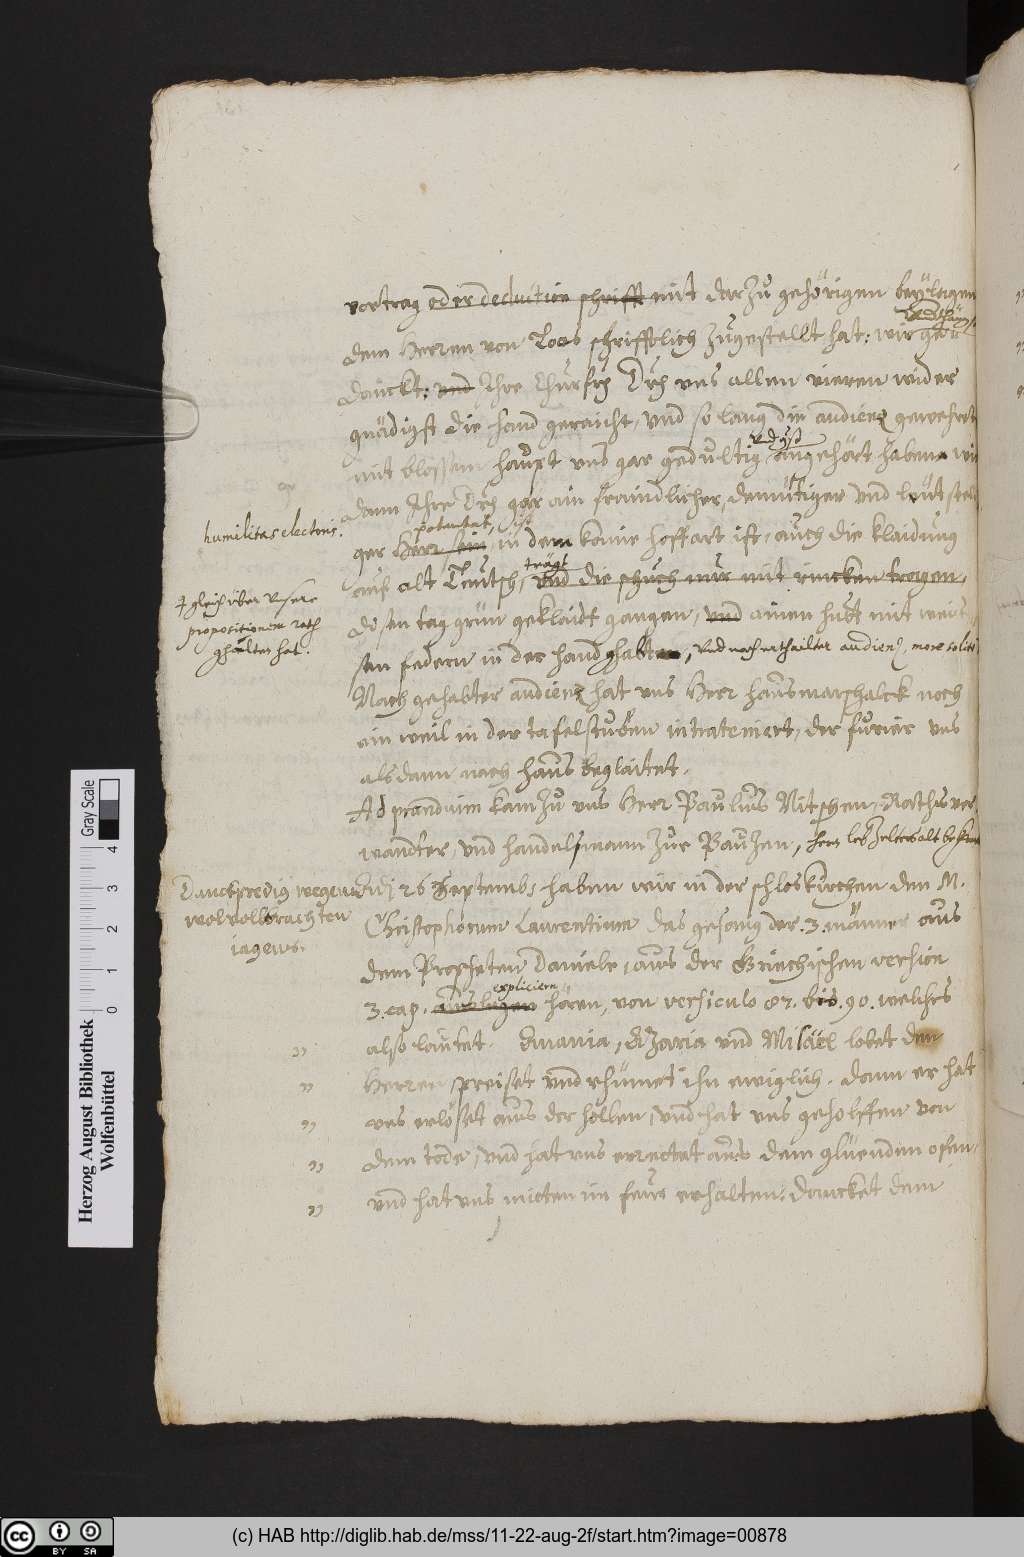 vortrag oder deduction schrifft mit darzů gehörigen beÿlagen
dem Herren von Loos schrifftlich zůgestellt hat: wir
danckt: und Ihre Churfrh Drh uns allen vieren wider
gnädigst die hand geraicht, und so lang die audienz gewehret
mit blossem haupt uns gar gedultig angehört haben, wie
dann Ihre Drh gar ain freindlicher, demütiger und
humilitas electoris.
potentat, ist
ger Herr sein, in dem kaine hoffart ist, auch die klaidung
trägt
auf alt Teutsch, und die schuch nur mit rincken tragen,
gleich über unsere
propositionem rath
ghalten hat.
disen tag grün geklaidt gangen, und ainen hutt mit
sen federn in der hand ghabt, und nach ertheilter audienz, more solito
Nach gehabter audienz hat uns Herr hausmarschalck noch
ain weil in der tafelstuben intrateniert, der furier uns
alsdann nach haus beglaitet.
Ad prandium kam zů uns Herr Paulus Nitschen, Rathsver
wandter, und handelsmann zur Bauzen,
Danckpredig wegen
wolvollbrachten
iagens.
Adj 26 Septemb. haben wir in der schloskirchen den M.
Christophorum Laurentium das gesang der .3. männer aus
dem Propheten Daniele, aus der Griechischen version
expliciern
3. cap. auslegen hören, von versiculo 87. bis .90. welches
" also lautet. Anania, Azaria und Misael lobet den
" Herren, preiset und rhümet ihn ewiglich. dann er hat
" uns erlöset aus der hollen, und hat uns geholffen von
" dem tode, und hat uns errettet aus dem glüenden ofen,
" und hat uns mitten im feur erhalten. dancket dem
Herzog August Bibliothek
Wolfenbüttel
0 1 2 3 4
Gray Scale
(c) HAB http://diglib.hab.de/mss/11-22-aug-2f/start.htm?image=00878
cc BY SA